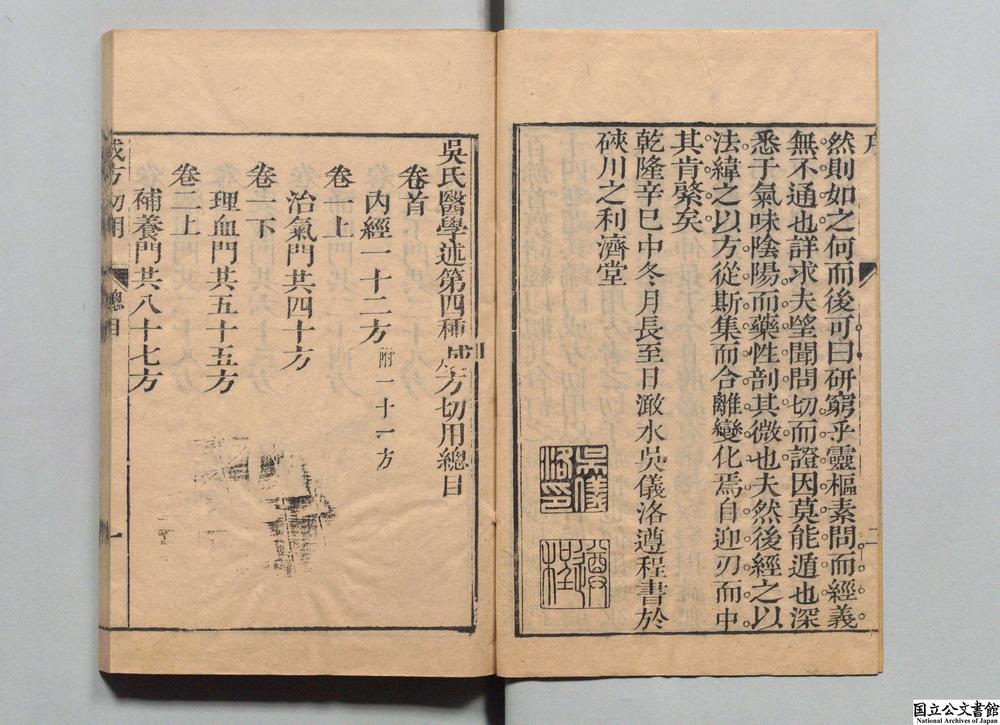 序
二
然則如之何而後可曰研窮乎靈樞素問而經義
無不通也詳求夫朢聞問切而證因莫能遁也深
悉于氣味陰陽而藥性剖其微也夫然後經之以
法緯之以方從斯集而合離變化焉自迎刃而中
其肯綮矣
乾隆辛巳中冬月長至日澉水吳儀洛遵程書於
硤川之利濟堂
吳儀
洛印
遵
程
吳氏醫學述第四種成方切用總目
卷首
內經一十二方附一十一方
卷一上
治氣門共四十方
卷一下
理血門共五十五方
卷二上
補養門共八十七方
成方切用
總目
一
国立公文書館
National Archives of Japan